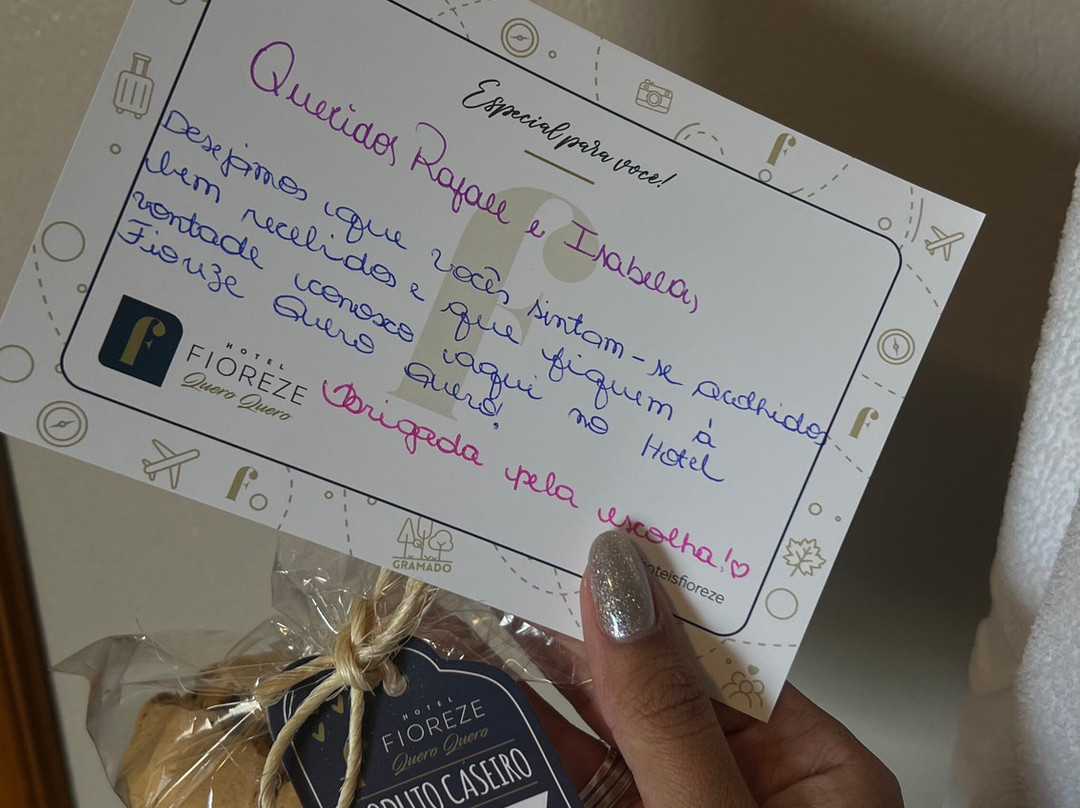 Especial para você!
Queridos Rafael e Isabela,
Desejamos que vocês sintam-se acolhidos
bem recebidos e que fiquem à
vontade conosco aqui no Hotel
Fioreze Quero Quero!
Obrigada pela escolha!♡
HOTEL
FIOREZE
Quero Quero
GRAMADO
hoteisfioreze
HOTEL
FIOREZE
Quero Quero
CASEIRO